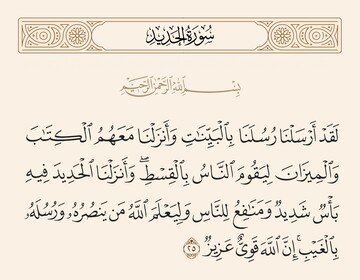 سُورَةُ الحَدِيدِ
بِسْمِ ٱللَّهِ ٱلرَّحْمَٰنِ ٱلرَّحِيمِ
لَقَدْ أَرْسَلْنَا رُسُلَنَا بِٱلْبَيِّنَٰتِ وَأَنزَلْنَا مَعَهُمُ ٱلْكِتَٰبَ
وَٱلْمِيزَانَ لِيَقُومَ ٱلنَّاسُ بِٱلْقِسْطِۖ وَأَنزَلْنَا ٱلْحَدِيدَ فِيهِ
بَأْسٌ شَدِيدٌ وَمَنَٰفِعُ لِلنَّاسِ وَلِيَعْلَمَ ٱللَّهُ مَن يَنصُرُهُۥ وَرُسُلَهُۥ
بِٱلْغَيْبِۚ إِنَّ ٱللَّهَ قَوِىٌّ عَزِيزٌ ٢٥